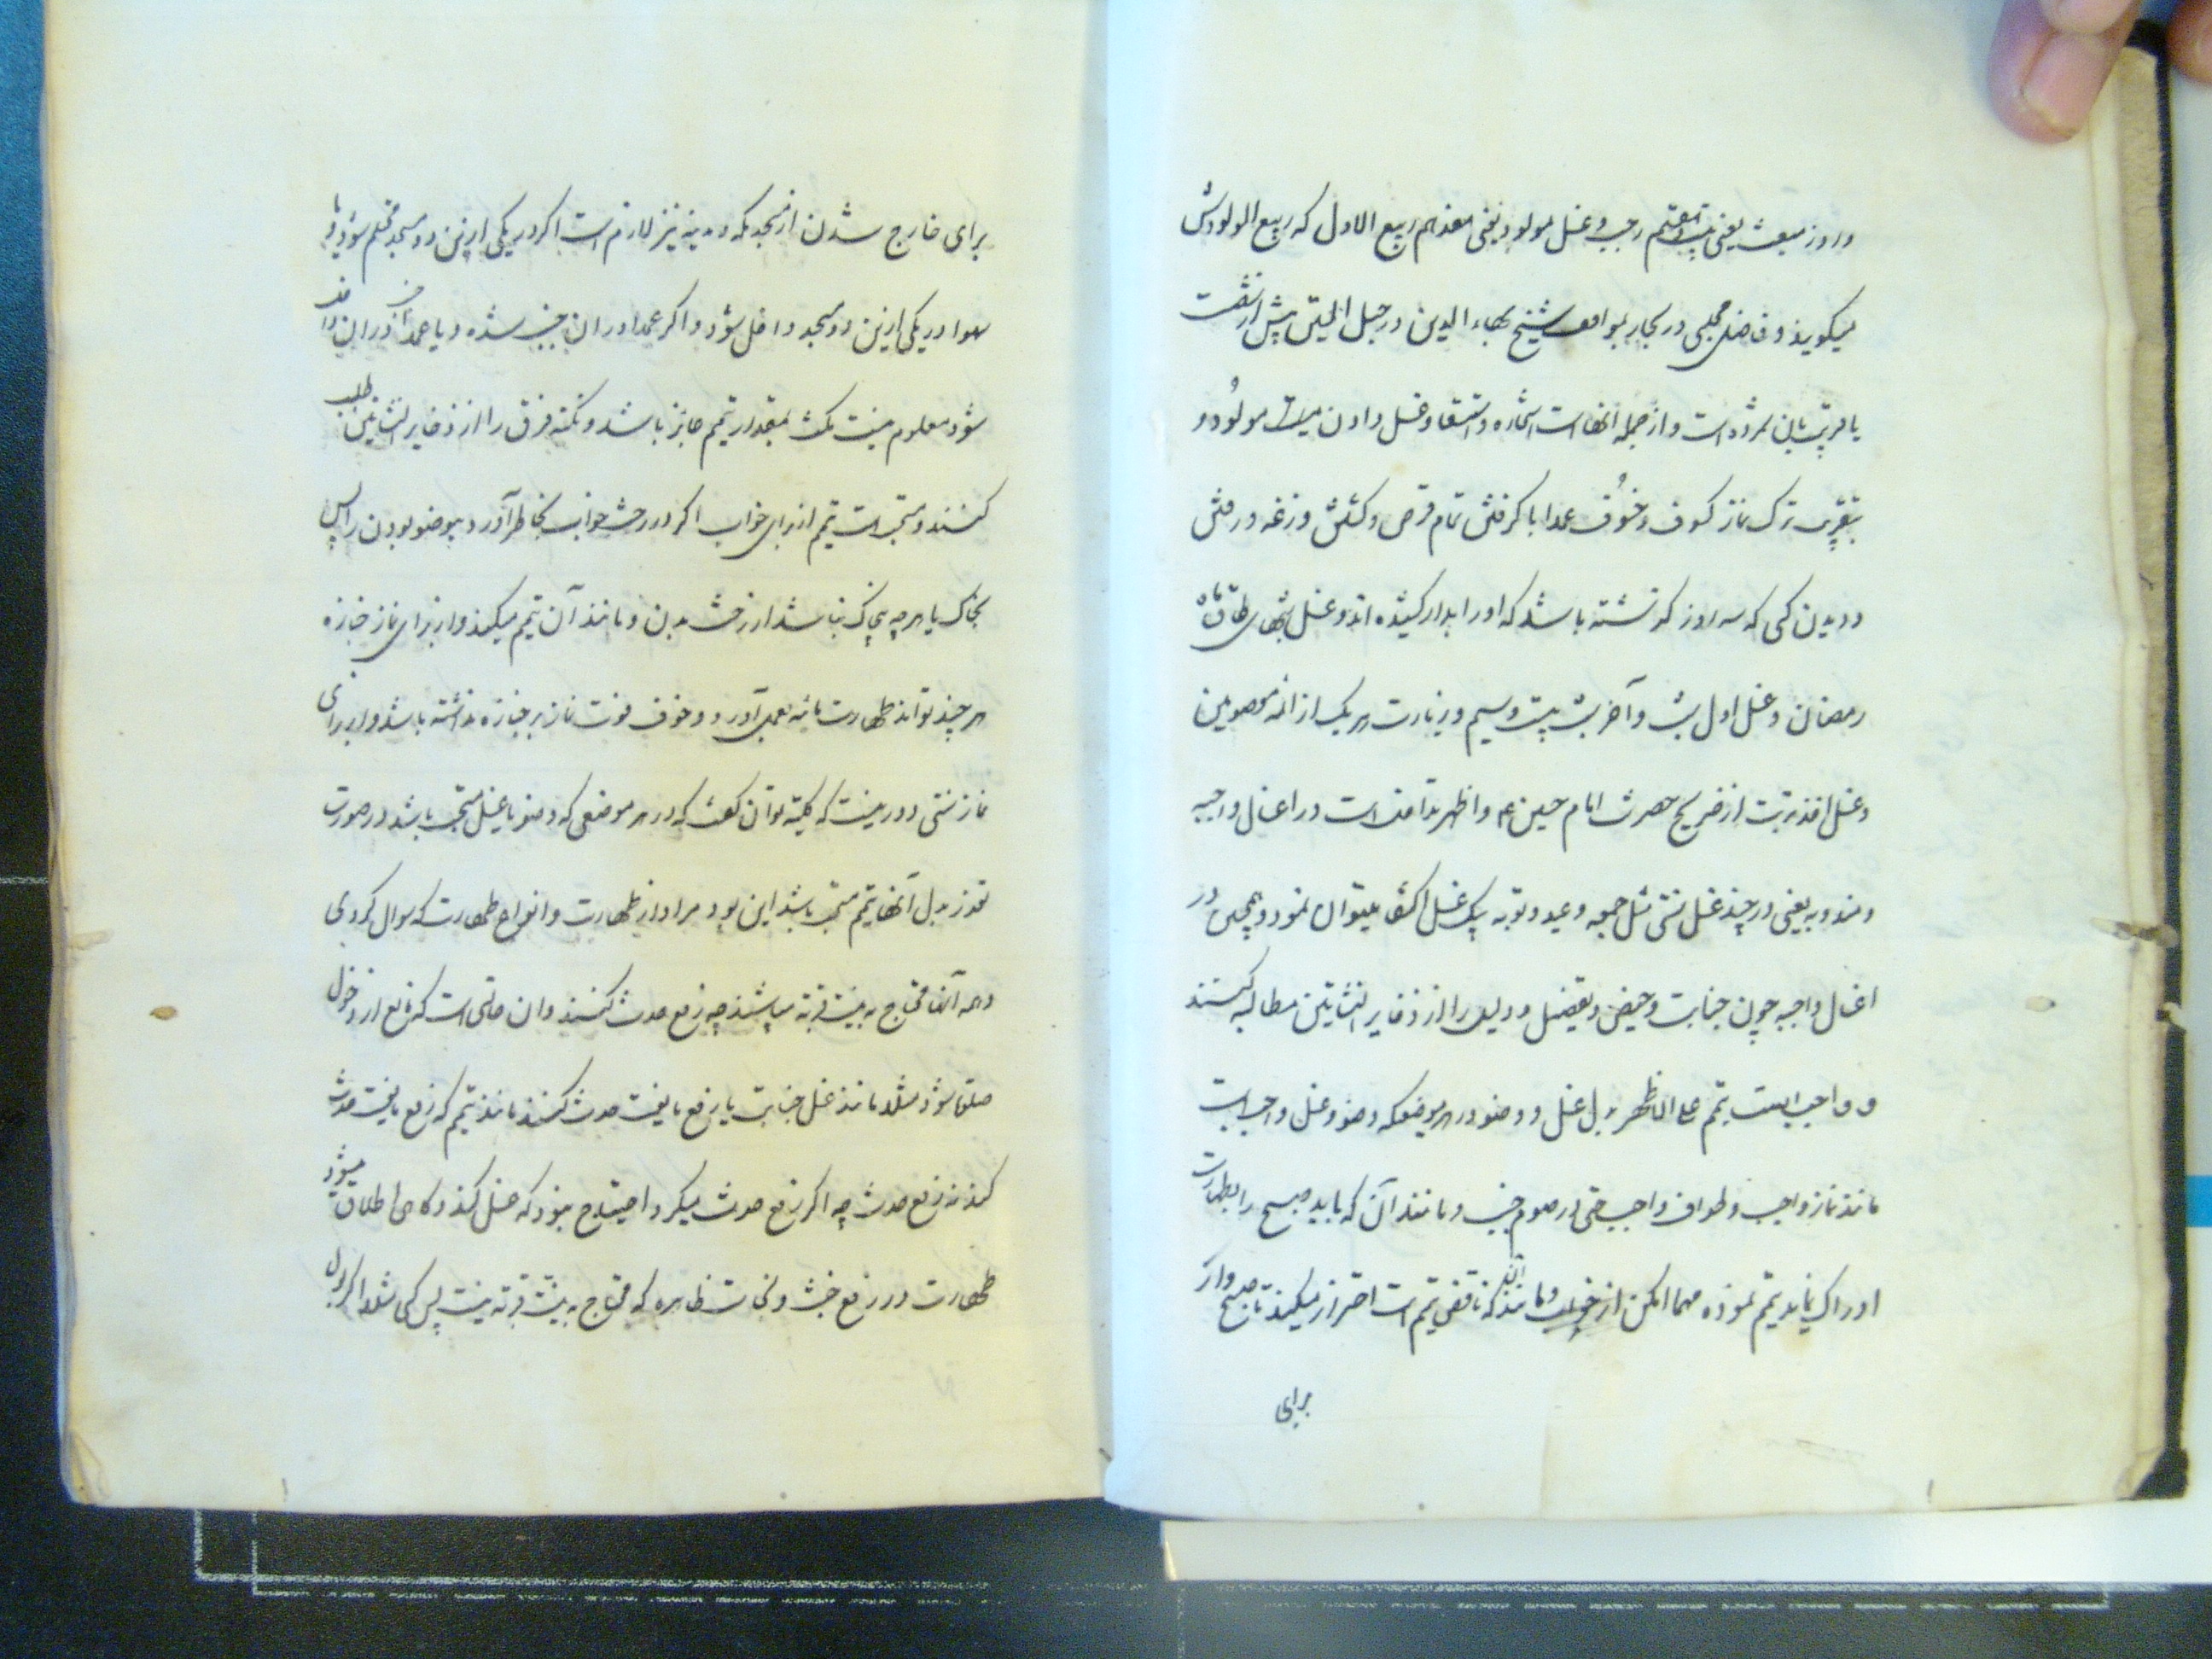 و روز مبعث یعنی بیست و هفتم رجب و غسل مولود یعنی هفدهم ربیع الاول که ربیع المولودش
میگویند و فاضل مجلسی در بحار بموافقت شیخ بهاء الدین در حبل المتین پیش از شصت
یا قریب باین شمرده است و از جمله آنهاست استخاره و استسقا و غسل دادن میت مولود و
بتقریب ترک نماز کسوف و خسوف عمدا با گرفتن تمام قرص و کشتن وزغه و رفتن
و دیدن کسی که سه روز گذشته باشد که او را بدار کشیده اند و غسل شبهای طاق ماه
رمضان و غسل اول شب و آخر شب بیست و سیم و زیارت هر یک از ائمه معصومین
و غسل اخذ تربت از ضریح حضرت امام حسین ع و اظهر تداخل است در اغسال واجبه
و مندوبه یعنی در چند غسل سنتی مثل جمعه و عید و توبه بیک غسل اکتفا میتوان نمود و همچنین در
اغسال واجبه چون جنابت و حیض و تفصیل و دلیل را از ذخایر النشاتین مطالبه کنند
و واجب است تیمم علی الاظهر بدل غسل و وضو در هر موضعکه وضو و غسل واجب است
مانند نماز واجب و طواف واجب حتی در صوم جنب و مانند آن که باید صبح را بطهارت
ادراک نماید تیمم نموده مهما امکن از خواب و مانند آن که ناقض تیمم است احتراز میکند تا صبح و از
برای
برای خارج شدن از مسجد مکه و مدینه نیز لازم است اگر در یکی ازین دو مسجد محتلم شود و یا
سهوا در یکی ازین دو مسجد داخل شود و اگر عمدا در آن جنب شده و یا عمدا در آن داخل
شود معلوم نیست مکث بمقدار تیمم جایز باشد و نکته فرق را از ذخایر النشاتین طلب
کنند و مستحب است تیمم از برای خواب اگر در رخت خواب بخاطر آورد بیوضو بودن را پس
بخاک یا هر چه پاک باشد از رخت بدن و مانند آن تیمم میکند و از برای نماز جنازه
هر چند تواند طهارت مائیه بعمل آورد و خوف فوت نماز بر جنازه نداشته باشد و از برای
نماز سنتی و دور نیست که کلیة توان گفت که در هر موضعی که وضو یا غسل مستحب باشد در صورت
تعذر بدل آنها تیمم مستحب باشد این بود مراد از طهارت و انواع طهارت که سوال کردی
و همه آنها محتاج به نیت قربة میباشند چه رفع حدث کنند و آن حالتی است که مانع از دخول
صلوة شود مثلا مانند غسل جنابت یا رفع مانعیت حدث کنند مانند تیمم که رفع مانعیت حدث
کند نه رفع حدث چه اگر رفع حدث میکرد احتیاج نبود که غسل کند و گاهی اطلاق میشود
طهارت در رفع خبث و نجاست ظاهره که محتاج به نیت قربة نیست پس کسی مثلا اگر بول